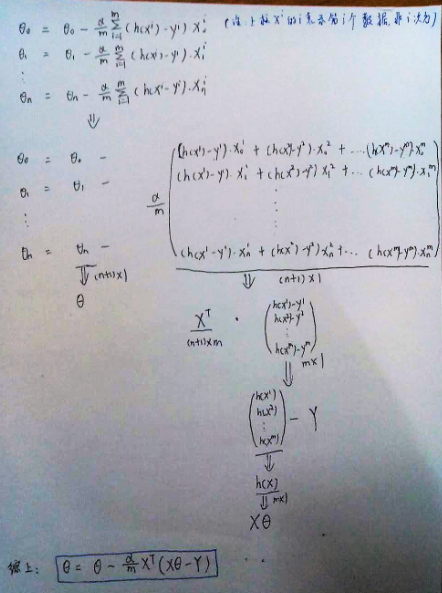 θ₀ = θ₀ - α/m ∑ᵢ₌₁ᵐ (h(xⁱ)-yⁱ) x₀ⁱ (注: 上标 xⁱ 的 i 表示第 i 个数据, 非 i 次方)
θ₁ = θ₁ - α/m ∑ᵢ₌₁ᵐ (h(xⁱ)-yⁱ)·x₁ⁱ
⋮
θₙ = θₙ - α/m ∑ᵢ₌₁ᵐ (h(xⁱ)-yⁱ)·xₙⁱ
⇓
θ₀ = θ₀ - (h(x¹)-y¹)·x₀¹ + (h(x²)-y²)·x₀² + ...(h(xᵐ)-yᵐ)·x₀ᵐ
θ₁ = θ₁ - (h(x¹)-y¹)·x₁¹ + (h(x²)-y²)·x₁² + ... (h(xᵐ)-yᵐ)·x₁ᵐ
α/m
⋮
θₙ = θₙ - (h(x¹)-y¹)·xₙ¹ + (h(x²)-y²)·xₙ² + ... (h(xᵐ)-yᵐ)·xₙᵐ
⇓ (n+1)×1 ⇓ (n+1)×1
θ
Xᵀ · (h(x¹)-y¹
h(x²)-y²
⋮
h(xᵐ)-yᵐ)
(n+1)×m m×1
⇓
(h(x¹)
h(x²)
⋮
h(xᵐ)) - Y
⇓
h(x)
⇓ m×1
Xθ
综上: θ = θ - α/m Xᵀ(Xθ-Y)